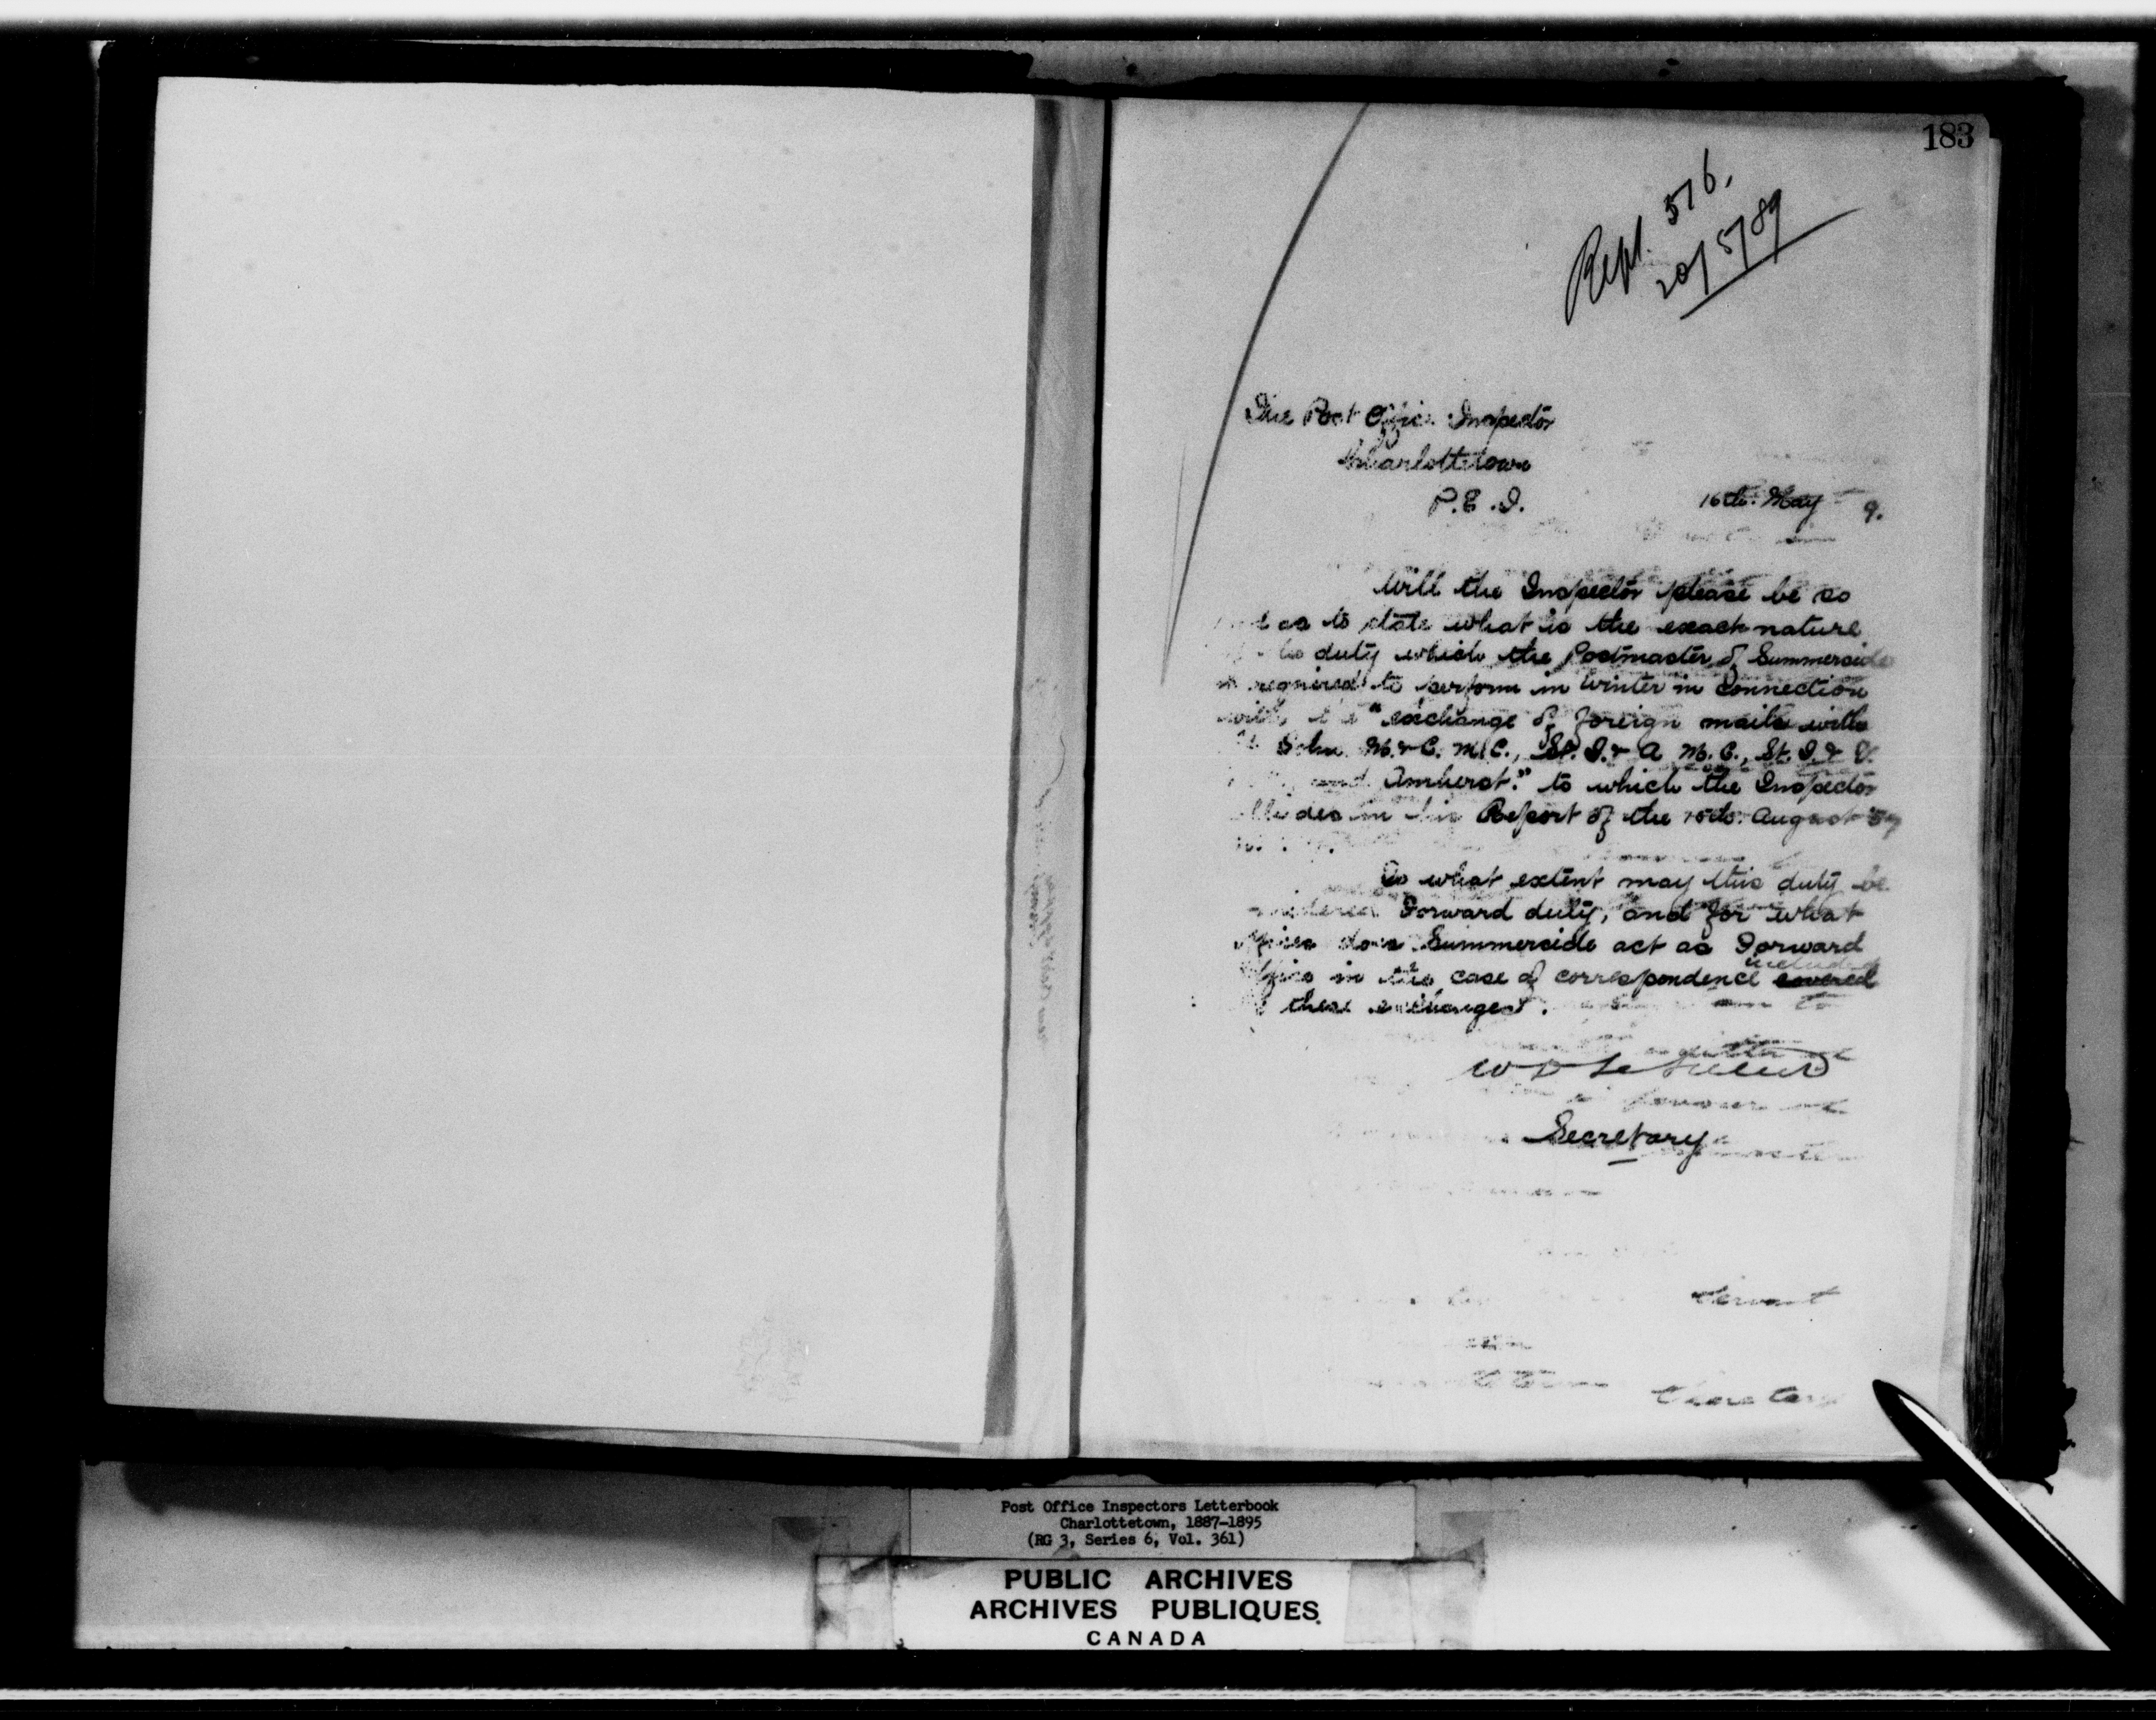 183
Repl. 516.
20/5/89
The Post Office Inspector
Charlottetown
P.E.I.
16th May 9.
Will the Inspector please be so
as to state what is the exact nature
duty which the Postmaster of Summerside
is required to perform in winter in connection
with the "exchange of foreign mails with
St. John M. & C. M.C., St. J. & A M.C., St. J. &
and Amherst." to which the Inspector
alludes in his Report of the 15th August
To what extent may this duty be
considered Forward duty, and for what
offices does Summerside act as Forward
Office in the case of correspondence included covered
these exchanges.
Secretary
Servant
Secretary
Post Office Inspectors Letterbook
Charlottetown, 1887-1895
(RG 3, Series 6, Vol. 361)
PUBLIC ARCHIVES
ARCHIVES PUBLIQUES
CANADA